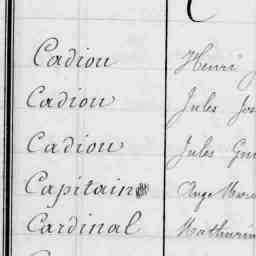 Cadiou Henri
Cadiou Jules
Cadiou Jules
Capitaine Ange
Cardinal Mathurin